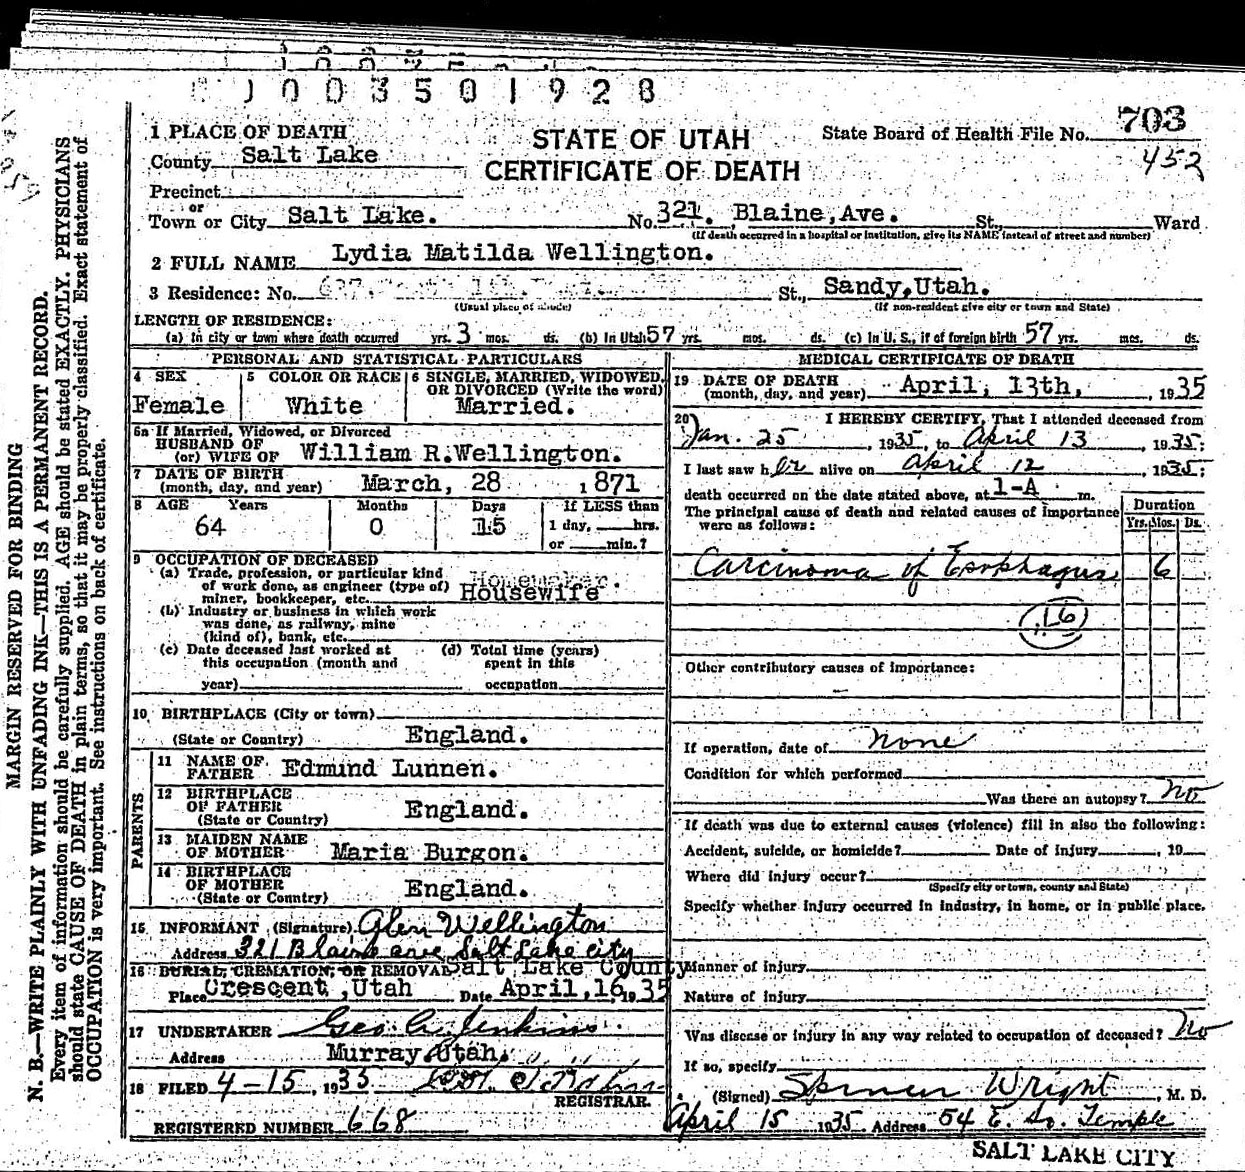 1003501928
1 PLACE OF DEATH
STATE OF UTAH
State Board of Health File No. 703
County Salt Lake
CERTIFICATE OF DEATH
452
Precinct
or
Town or City Salt Lake. No. 321. Blaine, Ave. St., Ward
(If death occurred in a hospital or institution, give its NAME instead of street and number)
2 FULL NAME Lydia Matilda Wellington.
3 Residence: No. St., Sandy, Utah.
(Usual place of abode) (If non-resident give city or town and State)
LENGTH OF RESIDENCE:
(a) In city or town where death occurred yrs. 3 mos. ds. (b) In Utah 57 yrs. mos. ds. (c) In U. S., if of foreign birth 57 yrs. mos. ds.
PERSONAL AND STATISTICAL PARTICULARS
4 SEX 5 COLOR OR RACE 6 SINGLE, MARRIED, WIDOWED, OR DIVORCED (Write the word)
Female White Married.
6a If Married, Widowed, or Divorced
HUSBAND OF
(or) WIFE OF William R. Wellington.
7 DATE OF BIRTH
(month, day, and year) March, 28 , 1871
8 AGE Years Months Days If LESS than
64 0 15 1 day, hrs.
or min.?
9 OCCUPATION OF DECEASED
(a) Trade, profession, or particular kind Homemaker.
of work done, as engineer (type of) Housewife
miner, bookkeeper, etc.
(b) Industry or business in which work
was done, as railway, mine
(kind of), bank, etc.
(c) Date deceased last worked at (d) Total time (years)
this occupation (month and spent in this
year) occupation
10 BIRTHPLACE (City or town)
(State or Country) England.
PARENTS
11 NAME OF
FATHER Edmund Lunnen.
12 BIRTHPLACE
OF FATHER England.
(State or Country)
13 MAIDEN NAME
OF MOTHER Maria Burgon.
14 BIRTHPLACE
OF MOTHER England.
(State or Country)
15 INFORMANT (Signature) Glen Wellington
Address 321 Blaine ave Salt Lake city
16 BURIAL, CREMATION, OR REMOVAL Salt Lake County
Place Crescent, Utah Date April, 16, 1935
17 UNDERTAKER Geo. A. Jenkins
Address Murray Utah.
18 FILED 4-15, 1935
REGISTRAR.
REGISTERED NUMBER 668
MEDICAL CERTIFICATE OF DEATH
19 DATE OF DEATH
(month, day, and year) April, 13th, , 1935
20 I HEREBY CERTIFY, That I attended deceased from
Jan. 25 , 1935, to April 13 , 1935;
I last saw her alive on April 12 , 1935;
death occurred on the date stated above, at 1-A m.
The principal cause of death and related causes of importance
were as follows:
Duration
Yrs. Mos. Ds.
Carcinoma of Esophagus 6
16
Other contributory causes of importance:
If operation, date of none
Condition for which performed
Was there an autopsy? No
If death was due to external causes (violence) fill in also the following:
Accident, suicide, or homicide? Date of injury , 19
Where did injury occur?
(Specify city or town, county and State)
Specify whether injury occurred in industry, in home, or in public place.
Manner of injury
Nature of injury
Was disease or injury in any way related to occupation of deceased? No
If so, specify
(Signed) Spencer Wright , M. D.
April 15 1935 Address 54 E. So. Temple
SALT LAKE CITY
MARGIN RESERVED FOR BINDING
N. B.—WRITE PLAINLY WITH UNFADING INK—THIS IS A PERMANENT RECORD.
Every item of information should be carefully supplied. AGE should be stated EXACTLY. PHYSICIANS
should state CAUSE OF DEATH in plain terms, so that it may be properly classified. Exact statement of
OCCUPATION is very important. See instructions on back of certificate.